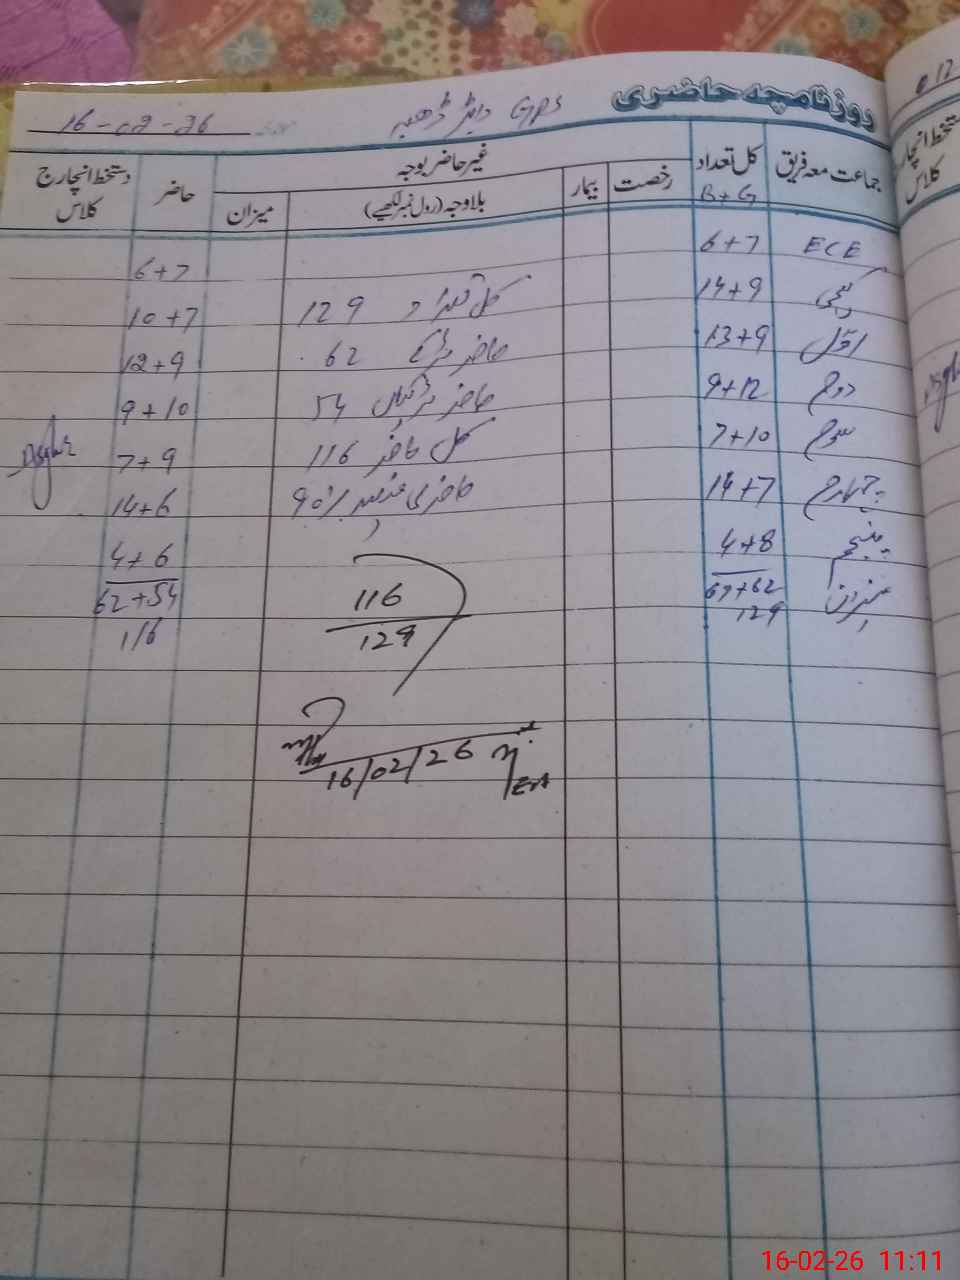 روزنامچہ حاضری
GPS
16-02-26
جماعت معہ فریق
کل تعداد
B+G
غیر حاضر بوجہ
رخصت
بیمار
بلاوجہ (رول نمبر لکھیے)
میزان
حاضر
دستخط انچارج کلاس
ECE 6+7 6+7
کچی 14+9 کل تعداد 129 10+7
اول 13+9 حاضر لڑکے 62 12+9
دوم 9+12 حاضر لڑکیاں 54 9+10
سوم 7+10 کل حاضر 116 7+9
چہارم 14+7 حاضری فیصد 90% 14+6
پنجم 4+8 4+6
میزان 67+62 62+54
129 116
116
129
16/02/26
16-02-26 11:11